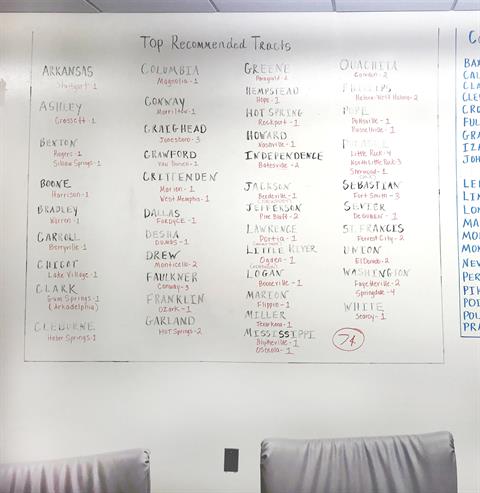 Top Recommended Tracts
ARKANSAS
Stuttgart - 1
ASHLEY
Crossett - 1
BENTON
Rogers - 1
Siloam Springs - 1
BOONE
Harrison - 1
BRADLEY
Warren - 1
CARROLL
Berryville - 1
CHICOT
Lake Village - 1
CLARK
Gum Springs - 1
(Arkadelphia)
CLEBURNE
Heber Springs - 1
COLUMBIA
Magnolia - 1
CONWAY
Morrilton - 1
CRAIGHEAD
Jonesboro - 3
CRAWFORD
Van Buren - 1
CRITTENDEN
Marion - 1
West Memphis - 1
DALLAS
FORDYCE - 1
DESHA
DUMAS - 1
DREW
Monticello - 2
FAULKNER
Conway - 3
FRANKLIN
OZARK - 1
GARLAND
HOT SPRINGS - 2
GREENE
Paragould - 2
HEMPSTEAD
Hope - 1
HOT SPRING
Rockport - 1
HOWARD
Nashville - 1
INDEPENDENCE
Batesville - 2
JACKSON
JEFFERSON
Pine Bluff - 2
LAWRENCE
Portia - 1
LITTLE RIVER
Ogden - 1
LOGAN
Booneville - 1
MARION
Flippin - 1
MILLER
Texarkana - 1
MISSISSIPPI
Blytheville - 1
Osceola - 1
OUACHITA
Camden - 2
PHILLIPS
Helena-West Helena - 2
POPE
Pottsville - 1
Russellville - 1
PULASKI
Little Rock - 4
North Little Rock - 3
Sherwood - 1
SEBASTIAN
Fort Smith - 3
SEVIER
DeQueen - 1
ST. FRANCIS
Forrest City - 2
UNION
El Dorado - 2
WASHINGTON
Fayetteville - 2
Springdale - 4
WHITE
Searcy - 1
74